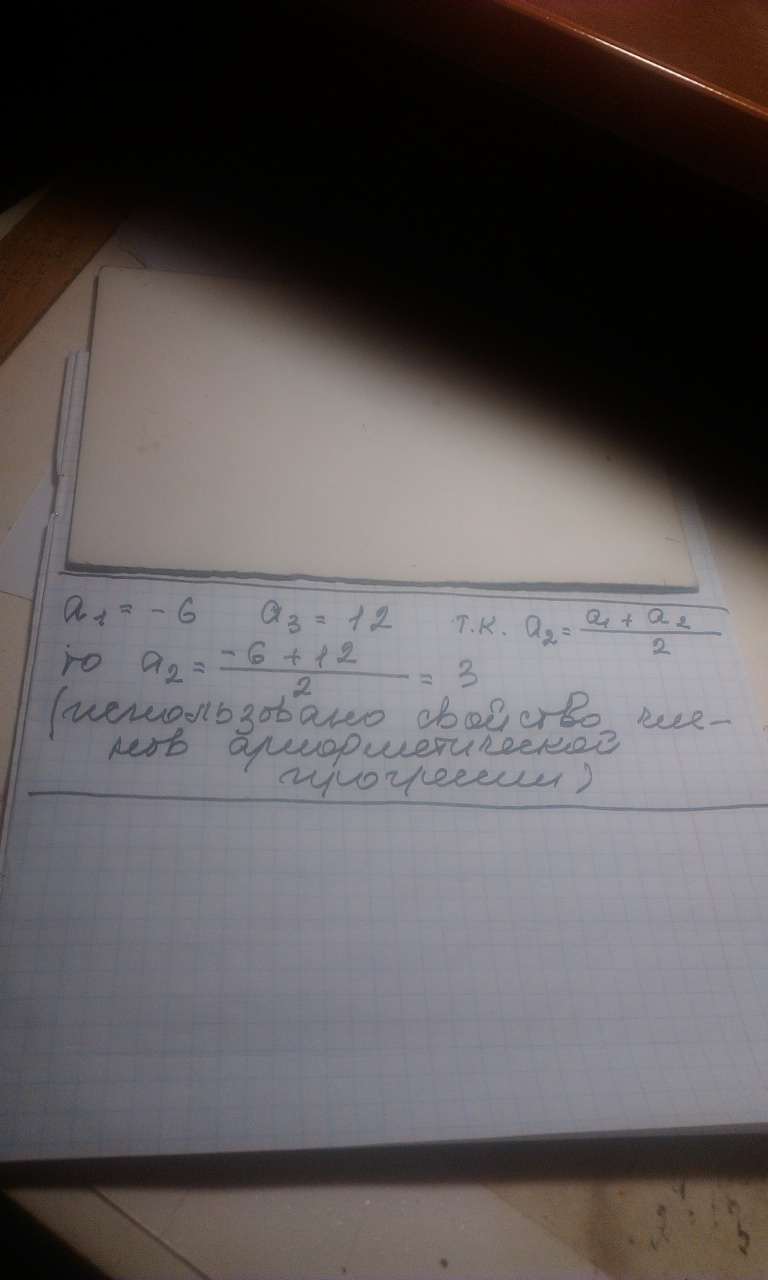 a₁ = -6 a₃ = 12 т.к. a₂ = (a₁ + a₂)/2
то a₂ = (-6 + 12)/2 = 3
(использовано свойство чле-
нов арифметической
прогрессии)